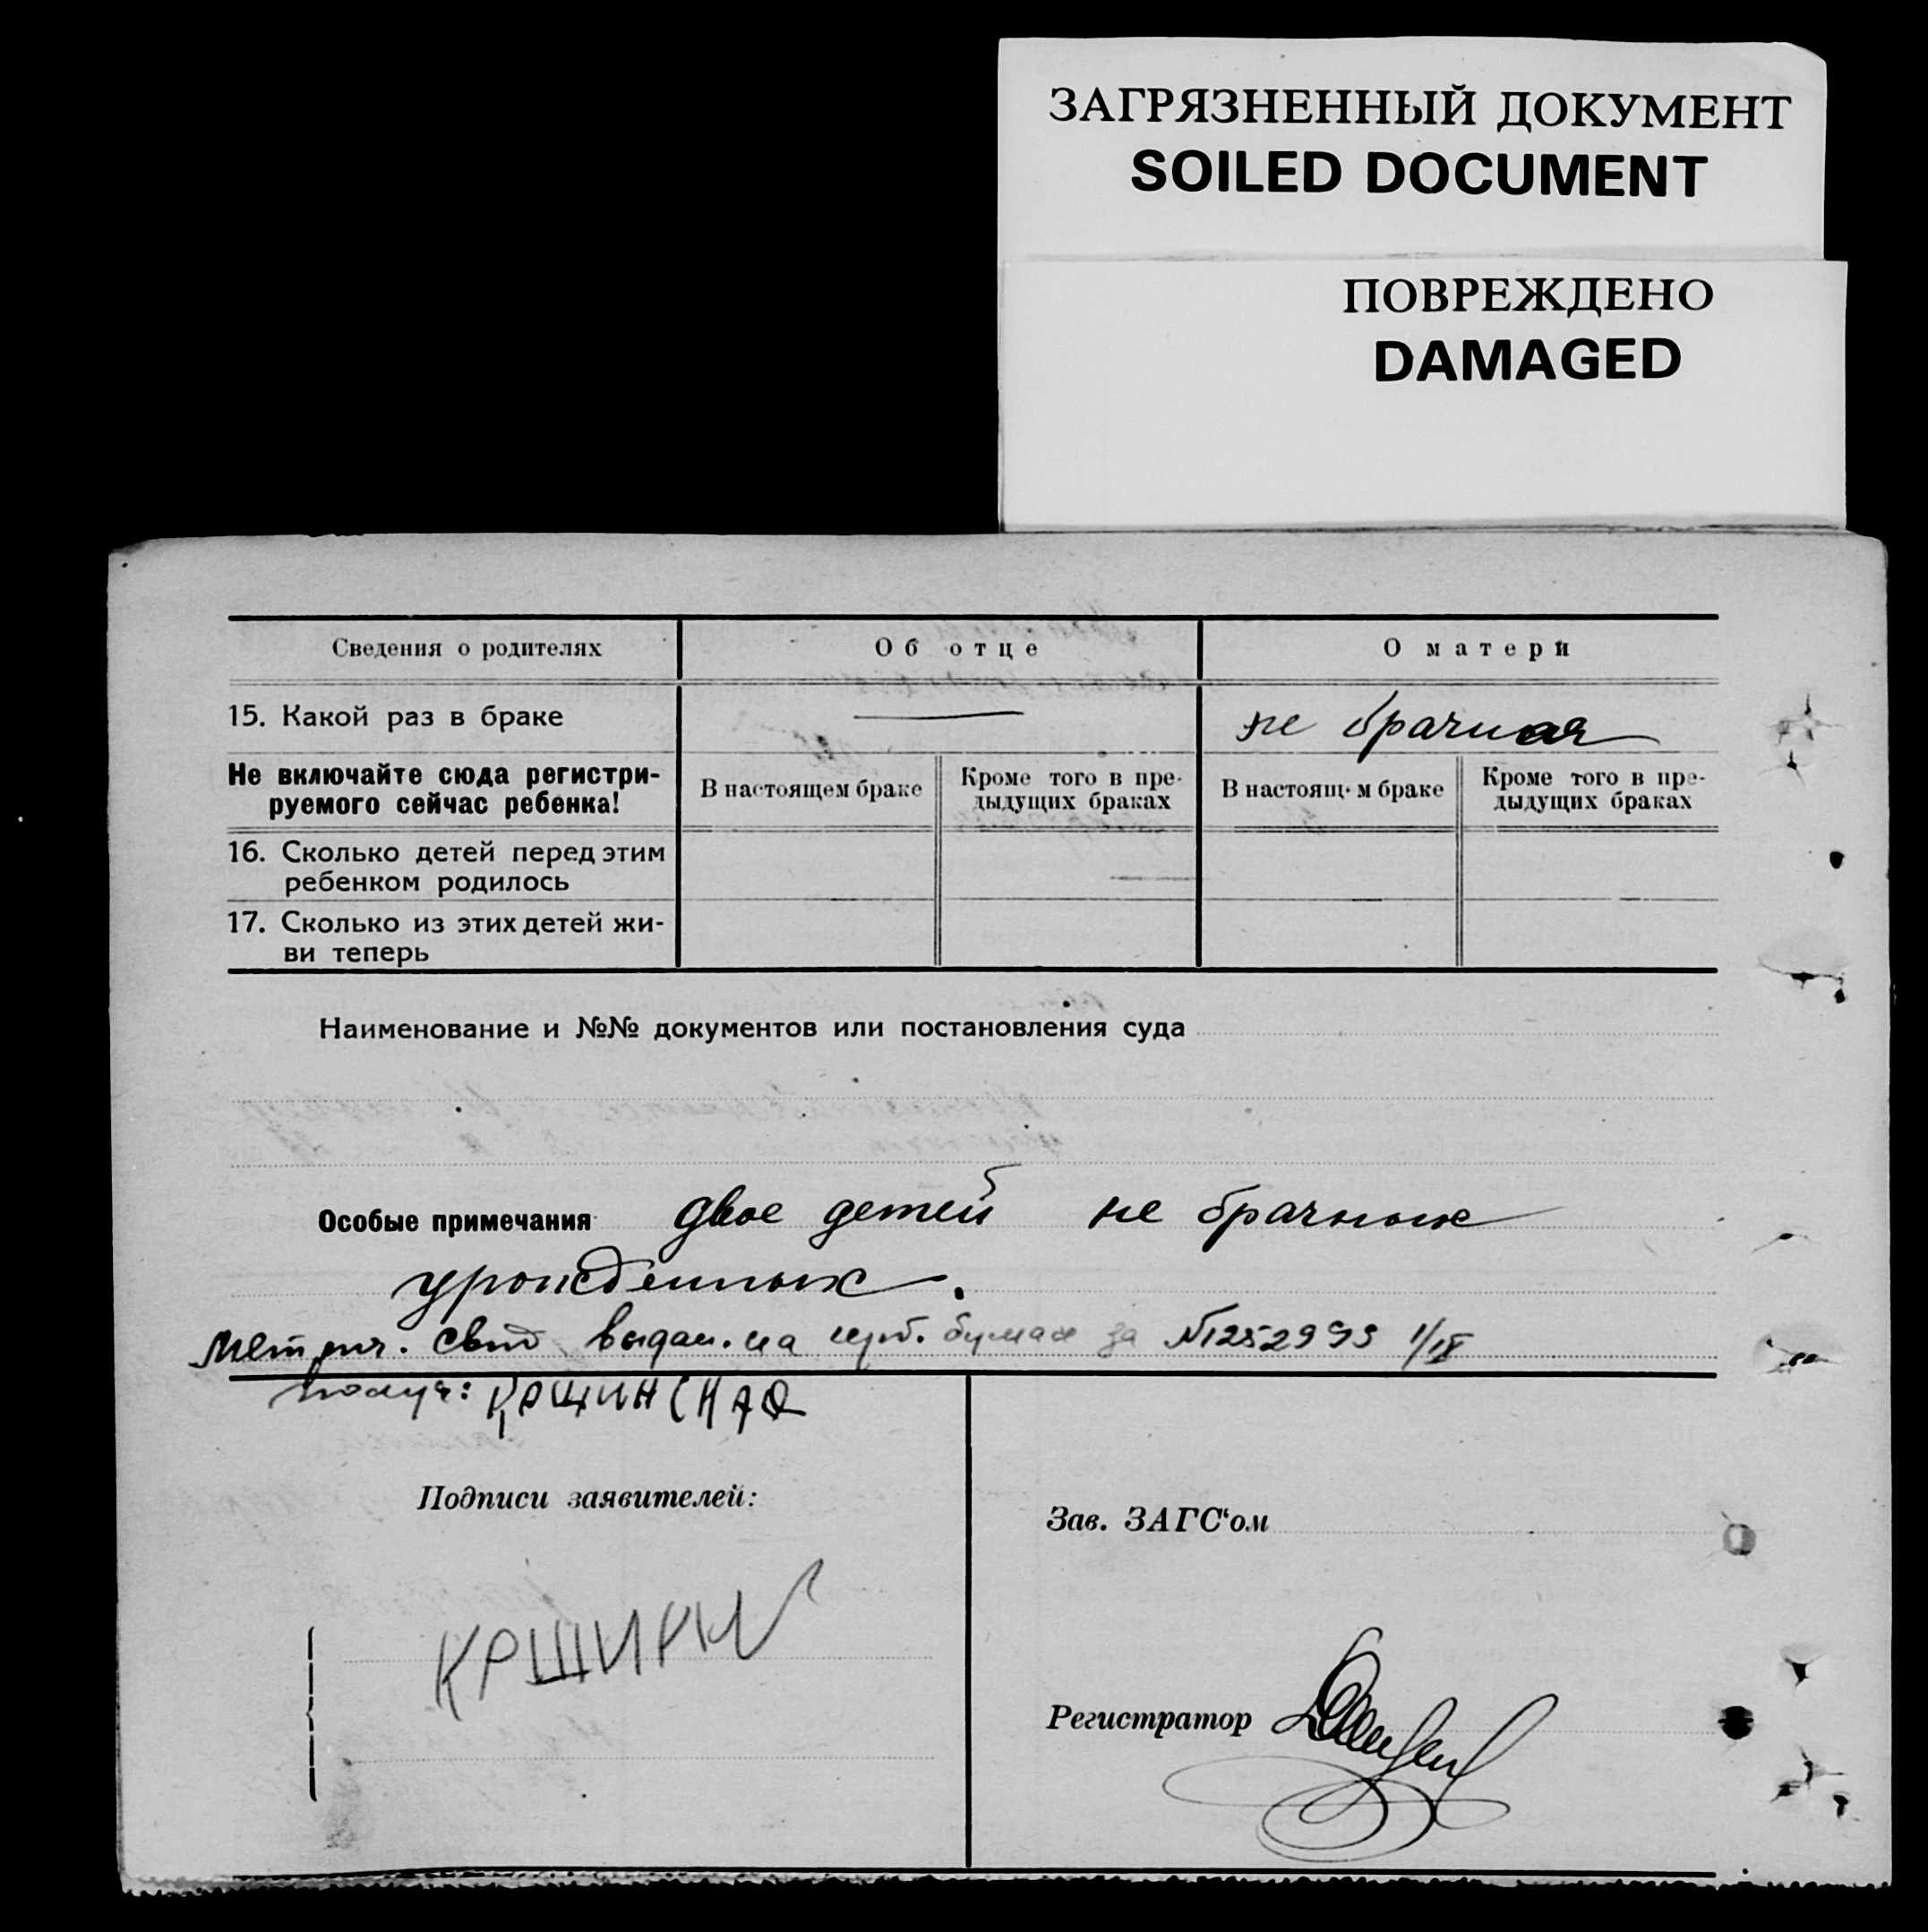 ЗАГРЯЗНЕННЫЙ ДОКУМЕНТ
SOILED DOCUMENT
ПОВРЕЖДЕНО
DAMAGED
Сведения о родителях
Об отце
О матери
15. Какой раз в браке
не брачная
Не включайте сюда регистри-
руемого сейчас ребенка!
В настоящем браке
Кроме того в пре-
дыдущих браках
В настоящ м браке
Кроме того в пре-
дыдущих браках
16. Сколько детей перед этим
ребенком родилось
17. Сколько из этих детей жи-
ви теперь
Наименование и №№ документов или постановления суда
Особые примечания двое детей не брачных
урожденных.
Метрич. свид выдан. на герб. бумаге за №1252993 1/IX
получ:
Подписи заявителей:
Зав. ЗАГС'ом
Регистратор